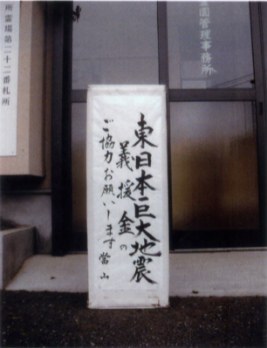 東日本巨大地震
義援金の
ご協力お願いします 當山
霊場第二十二番札所
霊園管理事務所